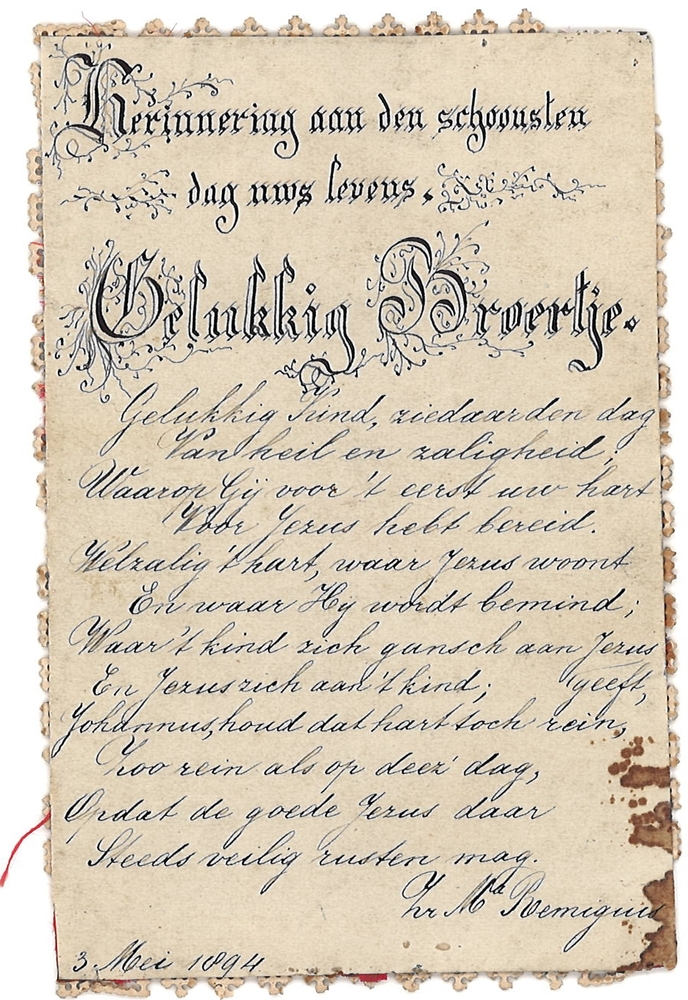 Herinnering aan den schoonsten
dag uws levens.
Gelukkig Broertje.
Gelukkig Kind, ziedaar den dag
Van heil en zaligheid;
Waarop Gij voor 't eerst uw hart
Voor Jezus hebt bereid.
Welzalig 't hart, waar Jezus woont
En waar Hij wordt bemind;
Waar 't kind zich gansch aan Jezus
geeft,
En Jezus zich aan 't kind;
Johannus, houd dat hart toch rein,
Zoo rein als op deez' dag,
Opdat de goede Jezus daar
Steeds veilig rusten mag.
Zr Ma Remigius
3 Mei 1894